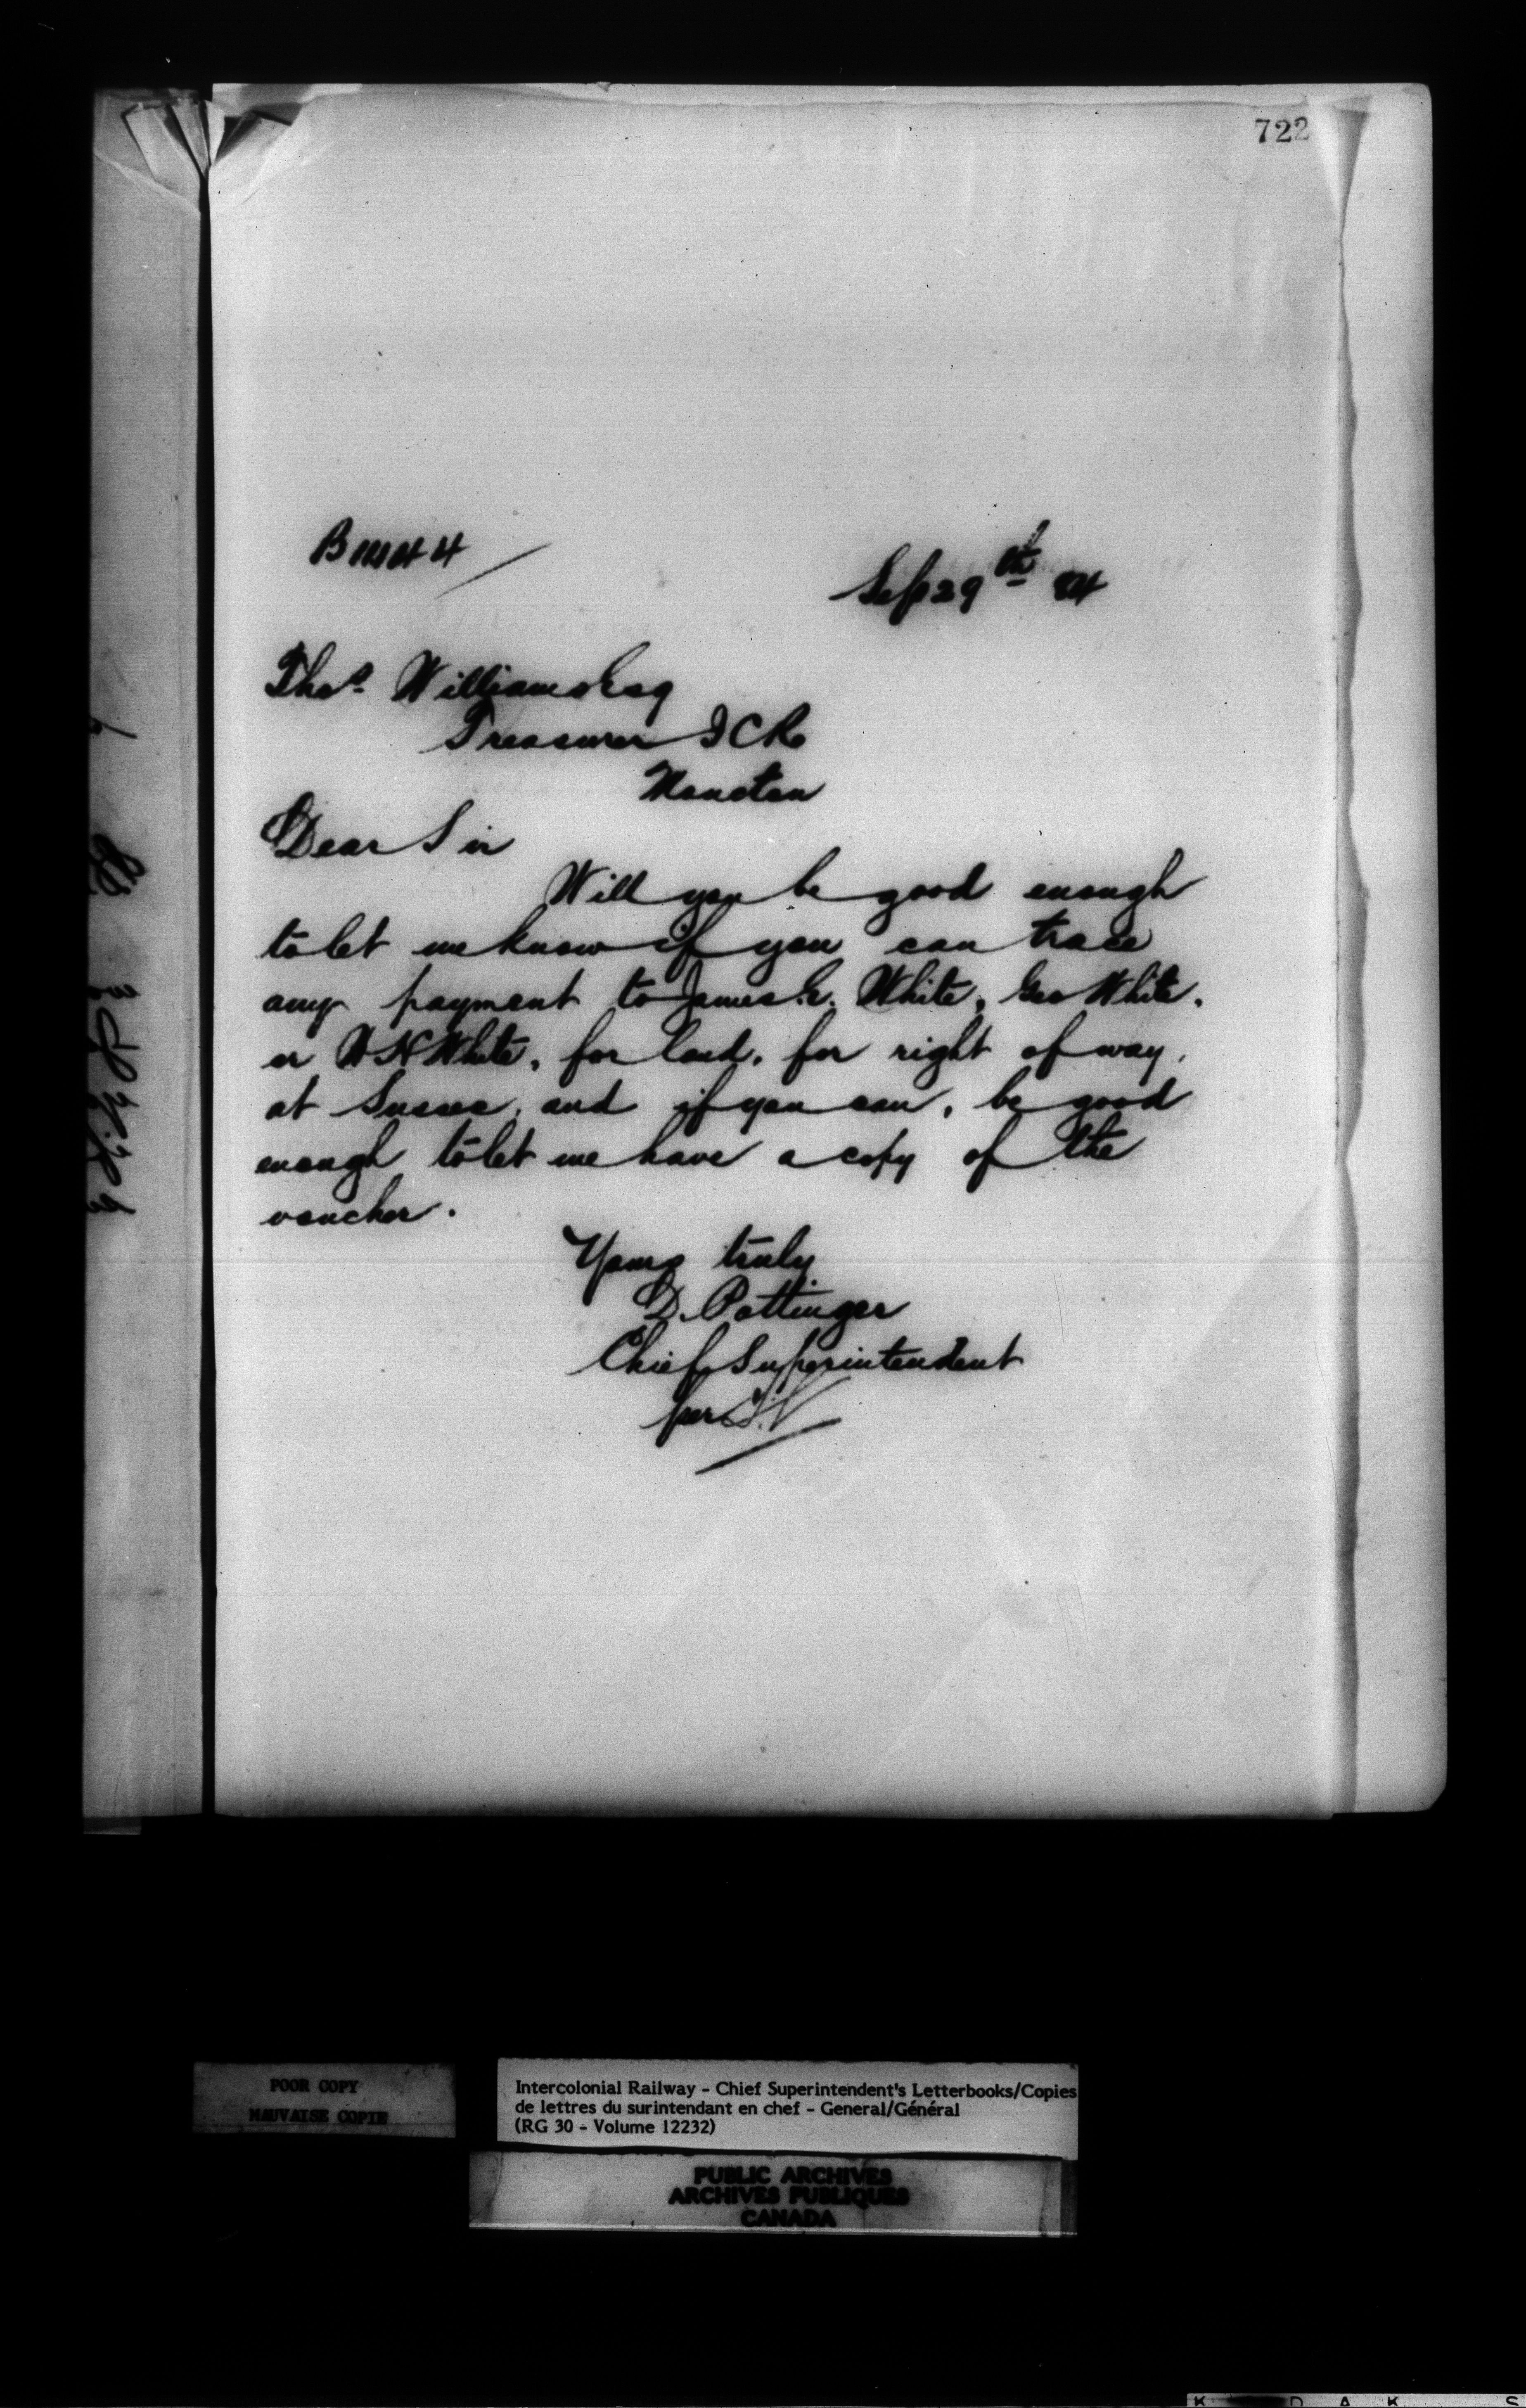 722
Sep 29th 84
Thos. Williams Esq
Treasurer I C R
Moncton
Dear Sir
Will you be good enough
to let me know if you can trace
any payment to James E. White, Geo White,
or W N White, for land, for right of way,
at Sussex, and if you can, be good
enough to let me have a copy of the
voucher.
Yours truly
D. Pottinger
Chief Superintendent
per
POOR COPY
MAUVAISE COPIE
Intercolonial Railway - Chief Superintendent's Letterbooks/Copies
de lettres du surintendant en chef - General/Général
(RG 30 - Volume 12232)
PUBLIC ARCHIVES
ARCHIVES PUBLIQUES
CANADA